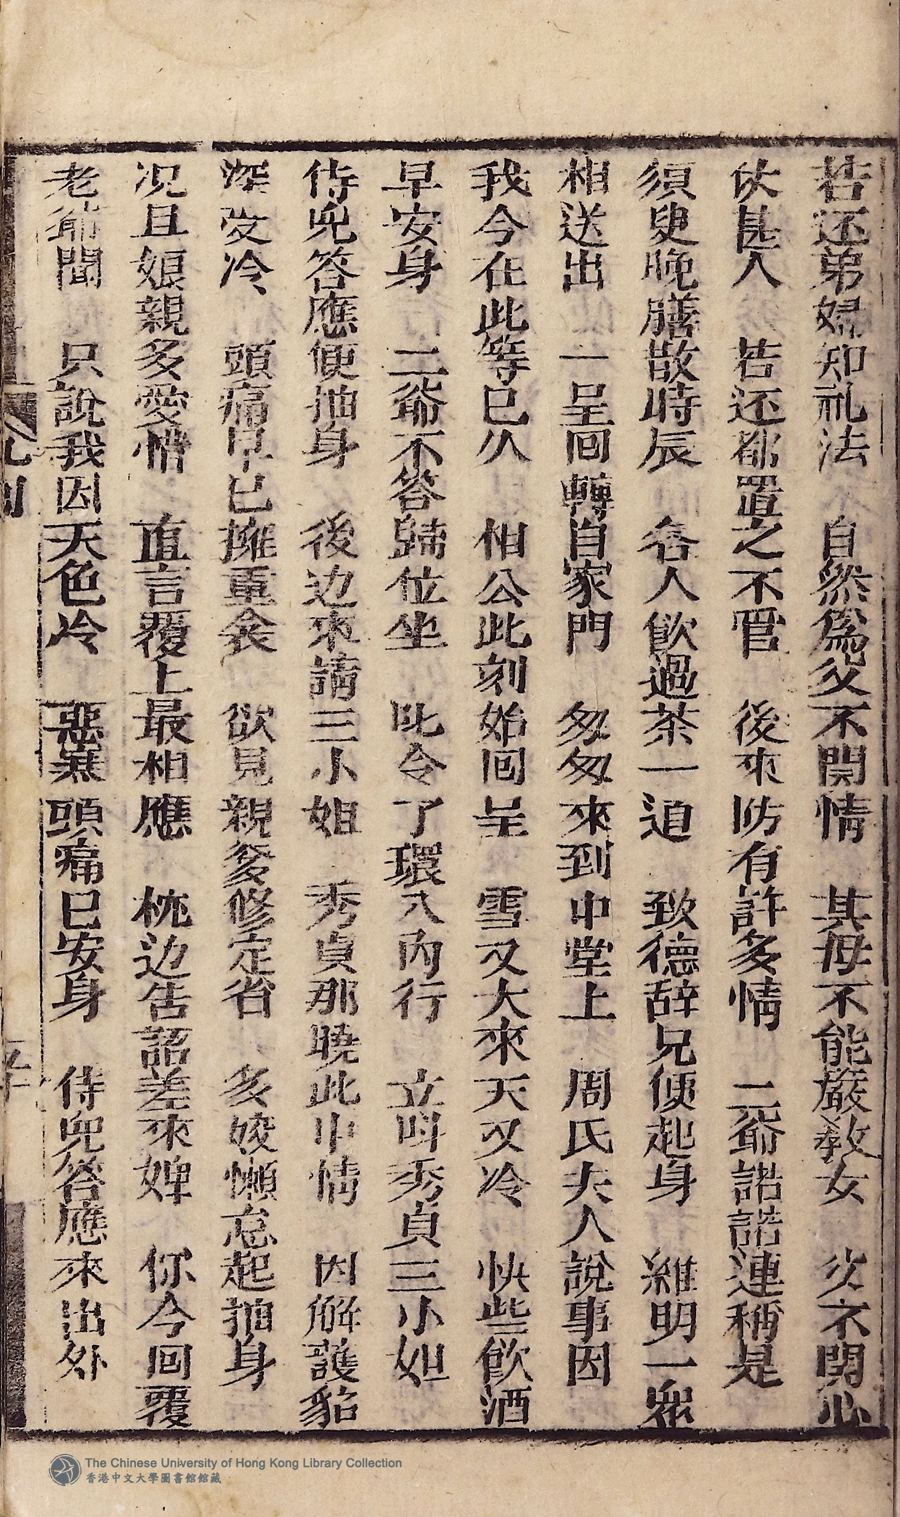 若还弟婦知礼法　自然為父不関情　其母不能嚴教女　父不関心
伏甚人　若还都置之不管　後來防有許多情　二爺諾諾連稱是
須臾晚膳散時辰　各人飲過茶一廵　致德辞兄便起身　維明一眾
相送出　一呈囬轉自家門　匆匆來到中堂上　周氏夫人說事因
我今在此等已久　相公此刻始囬呈　雪又大來天又冷　快些飲酒
早安身　二爺不答歸位坐　叱令了環入內行　立呌秀貞三小姐
侍兒答應便抽身　後边來請三小姐　秀貞那曉此中情　因觧護貂
深受冷　頭痛早已擁重衾　欲見親爹修定省　多婈懶怠起抽身
况且娘親多愛惜　直言覆上最相應　枕边告詔差來婢　你今囬覆
老爺聞　只說我因天色冷　惡寒頭痛已安身　侍兒答應來出外
The Chinese University of Hong Kong Library Collection
香港中文大學圖書館館藏